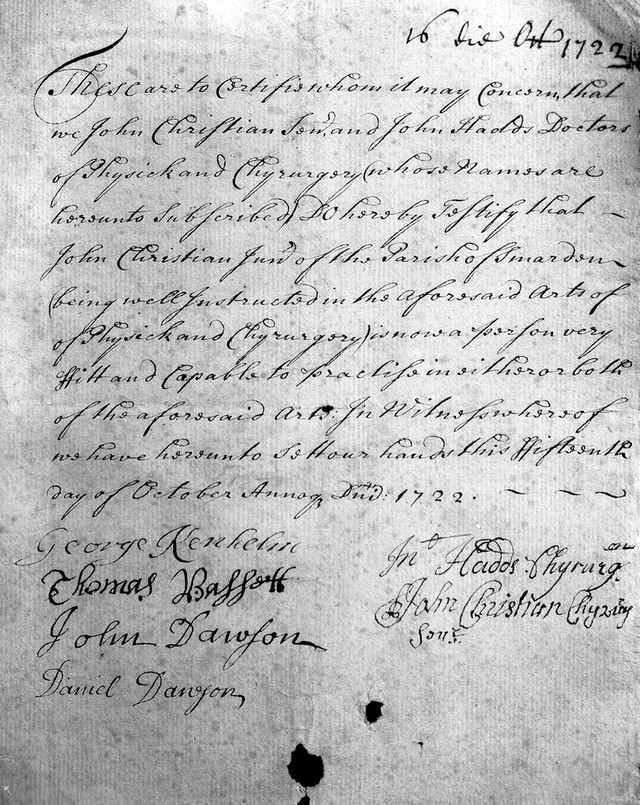 16 die Oct 1722
These are to Certifie whom it may Concern, that
we John Christian Senr. and John Hadds Doctors
of Physick and Chyrurgery (whose Names are
hereunto Subscribed) Do hereby Testify that
John Christian Junr of the Parish of Smarden
(being well Instructed in the aforesaid Arts of
of Physick and Chyrurgery) is now a person very
ffitt and Capable to practise in either or both
of the aforesaid Arts: In Witness whereof
we have hereunto Sett our hands this ffifteenth
day of October Annoq Dni: 1722.
George Kenhelm
Thomas Bassett
John Dawson
Daniel Dawson
Jno Hadds Chyrurgon
John Christian Chyrurg
Senr.